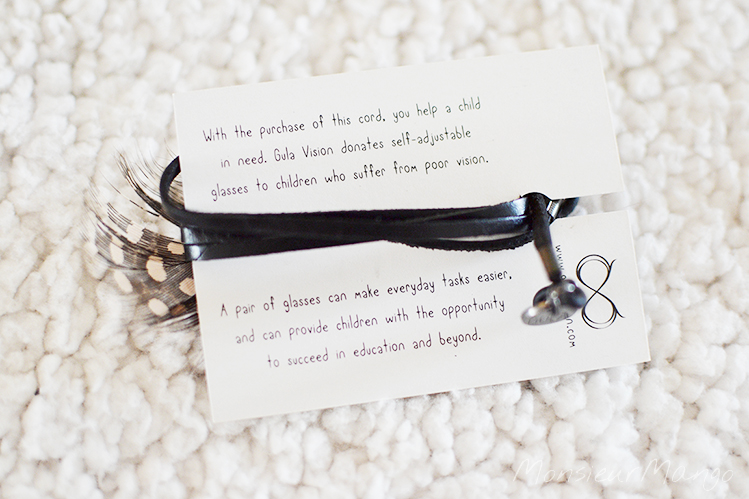 With the purchase of this cord, you help a child
in need. Gula Vision donates self-adjustable
glasses to children who suffer from poor vision.
A pair of glasses can make everyday tasks easier,
and can provide children with the opportunity
to succeed in education and beyond.
MonsieurMango